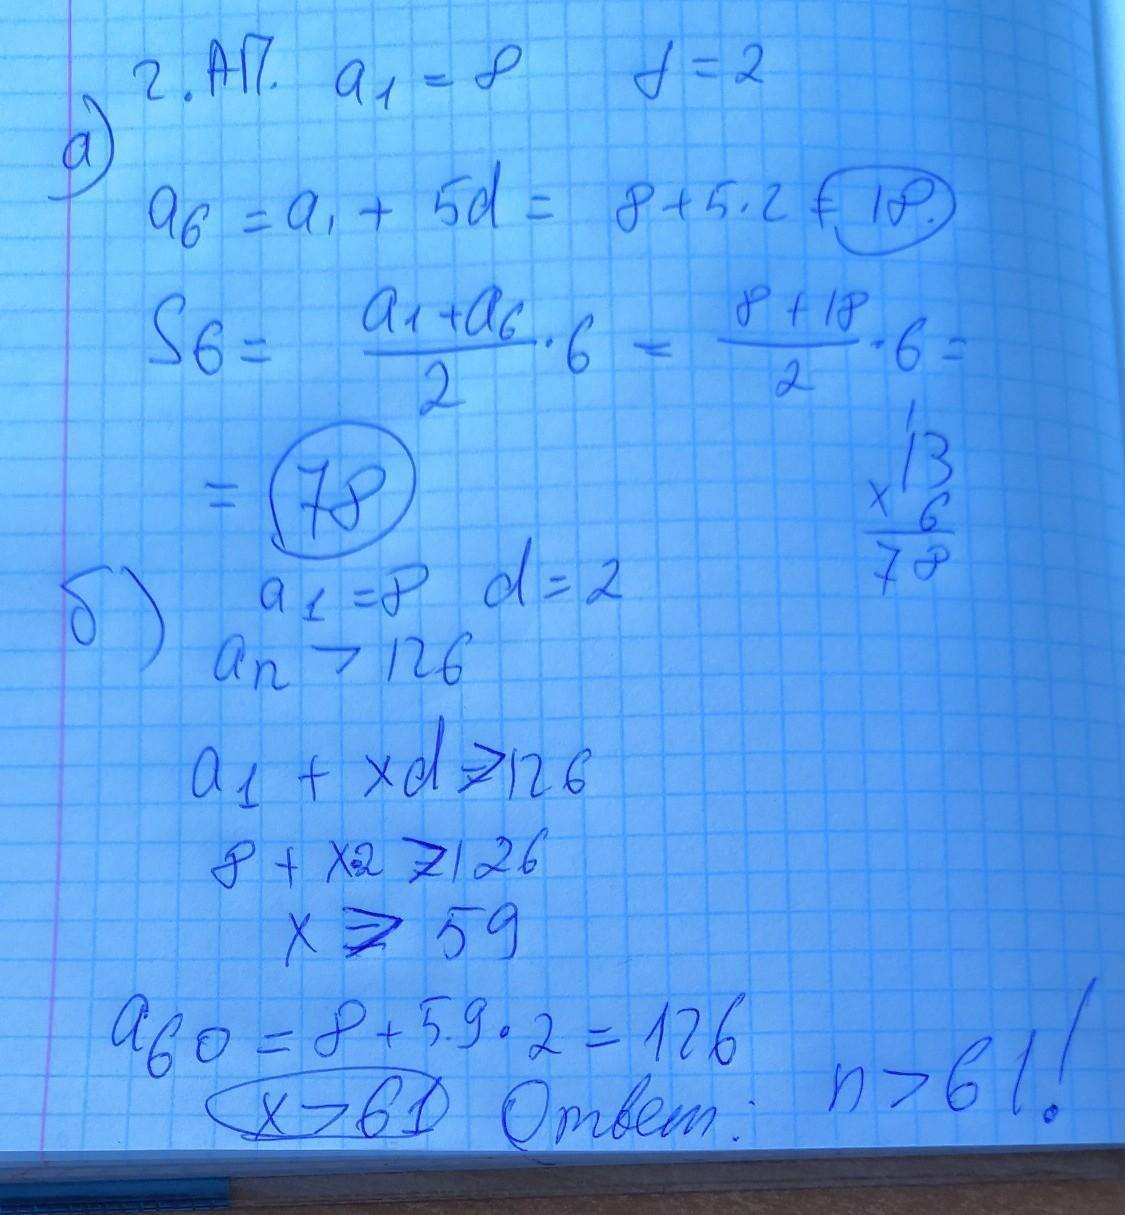 2. АП. a1 = 8 d = 2
а)
a6 = a1 + 5d = 8+5·2 = 18.
S6 = (a1+a6)/2 · 6 = (8+18)/2 · 6 =
= 78
1
13
× 6
78
б) a1 = 8 d = 2
an > 126
a1 + xd ≥ 126
8 + x·2 ≥ 126
x ≥ 59
a60 = 8 + 59·2 = 126
x > 61 Ответ: n > 61!